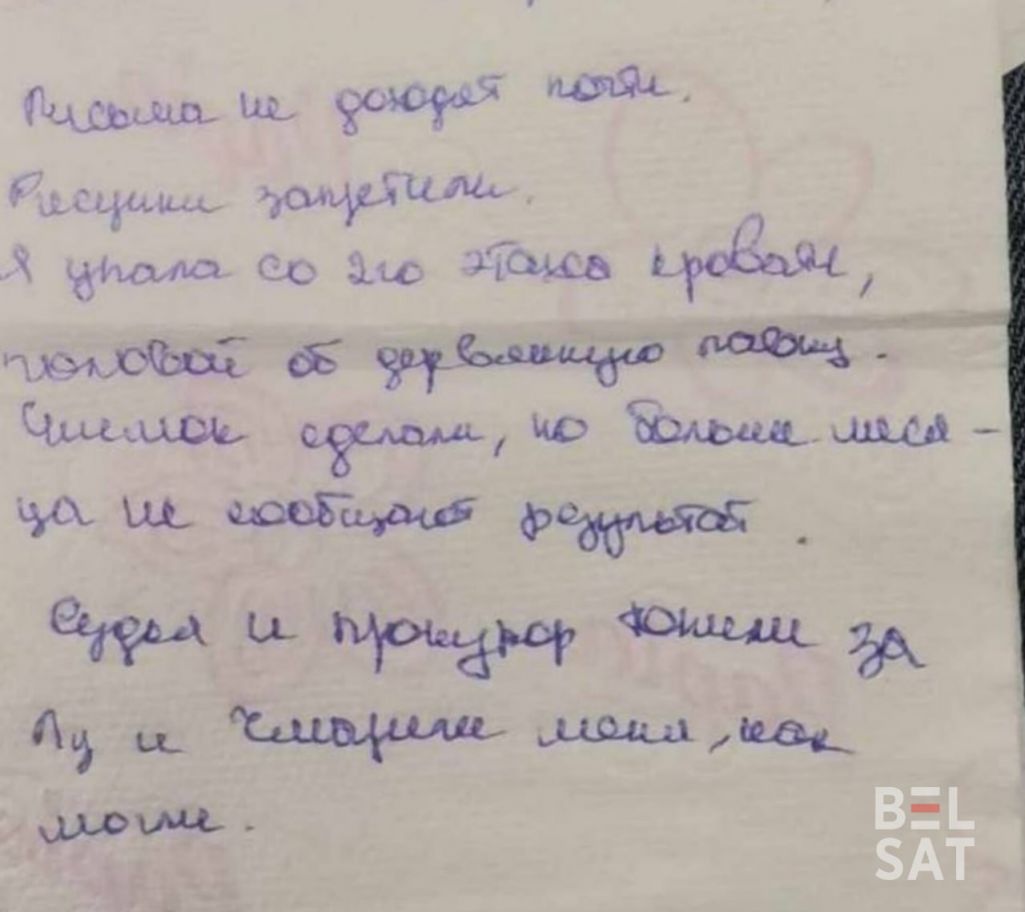 Письма не доходят почти.
Рисунки запретили.
Я упала со 2го этажа кровати,
головой об деревянную лавку.
Снимок сделали, но больше меся-
ца не сообщают результат.
Судья и прокурор топили за
Лу и чмарили меня, как
могли.
BELSAT